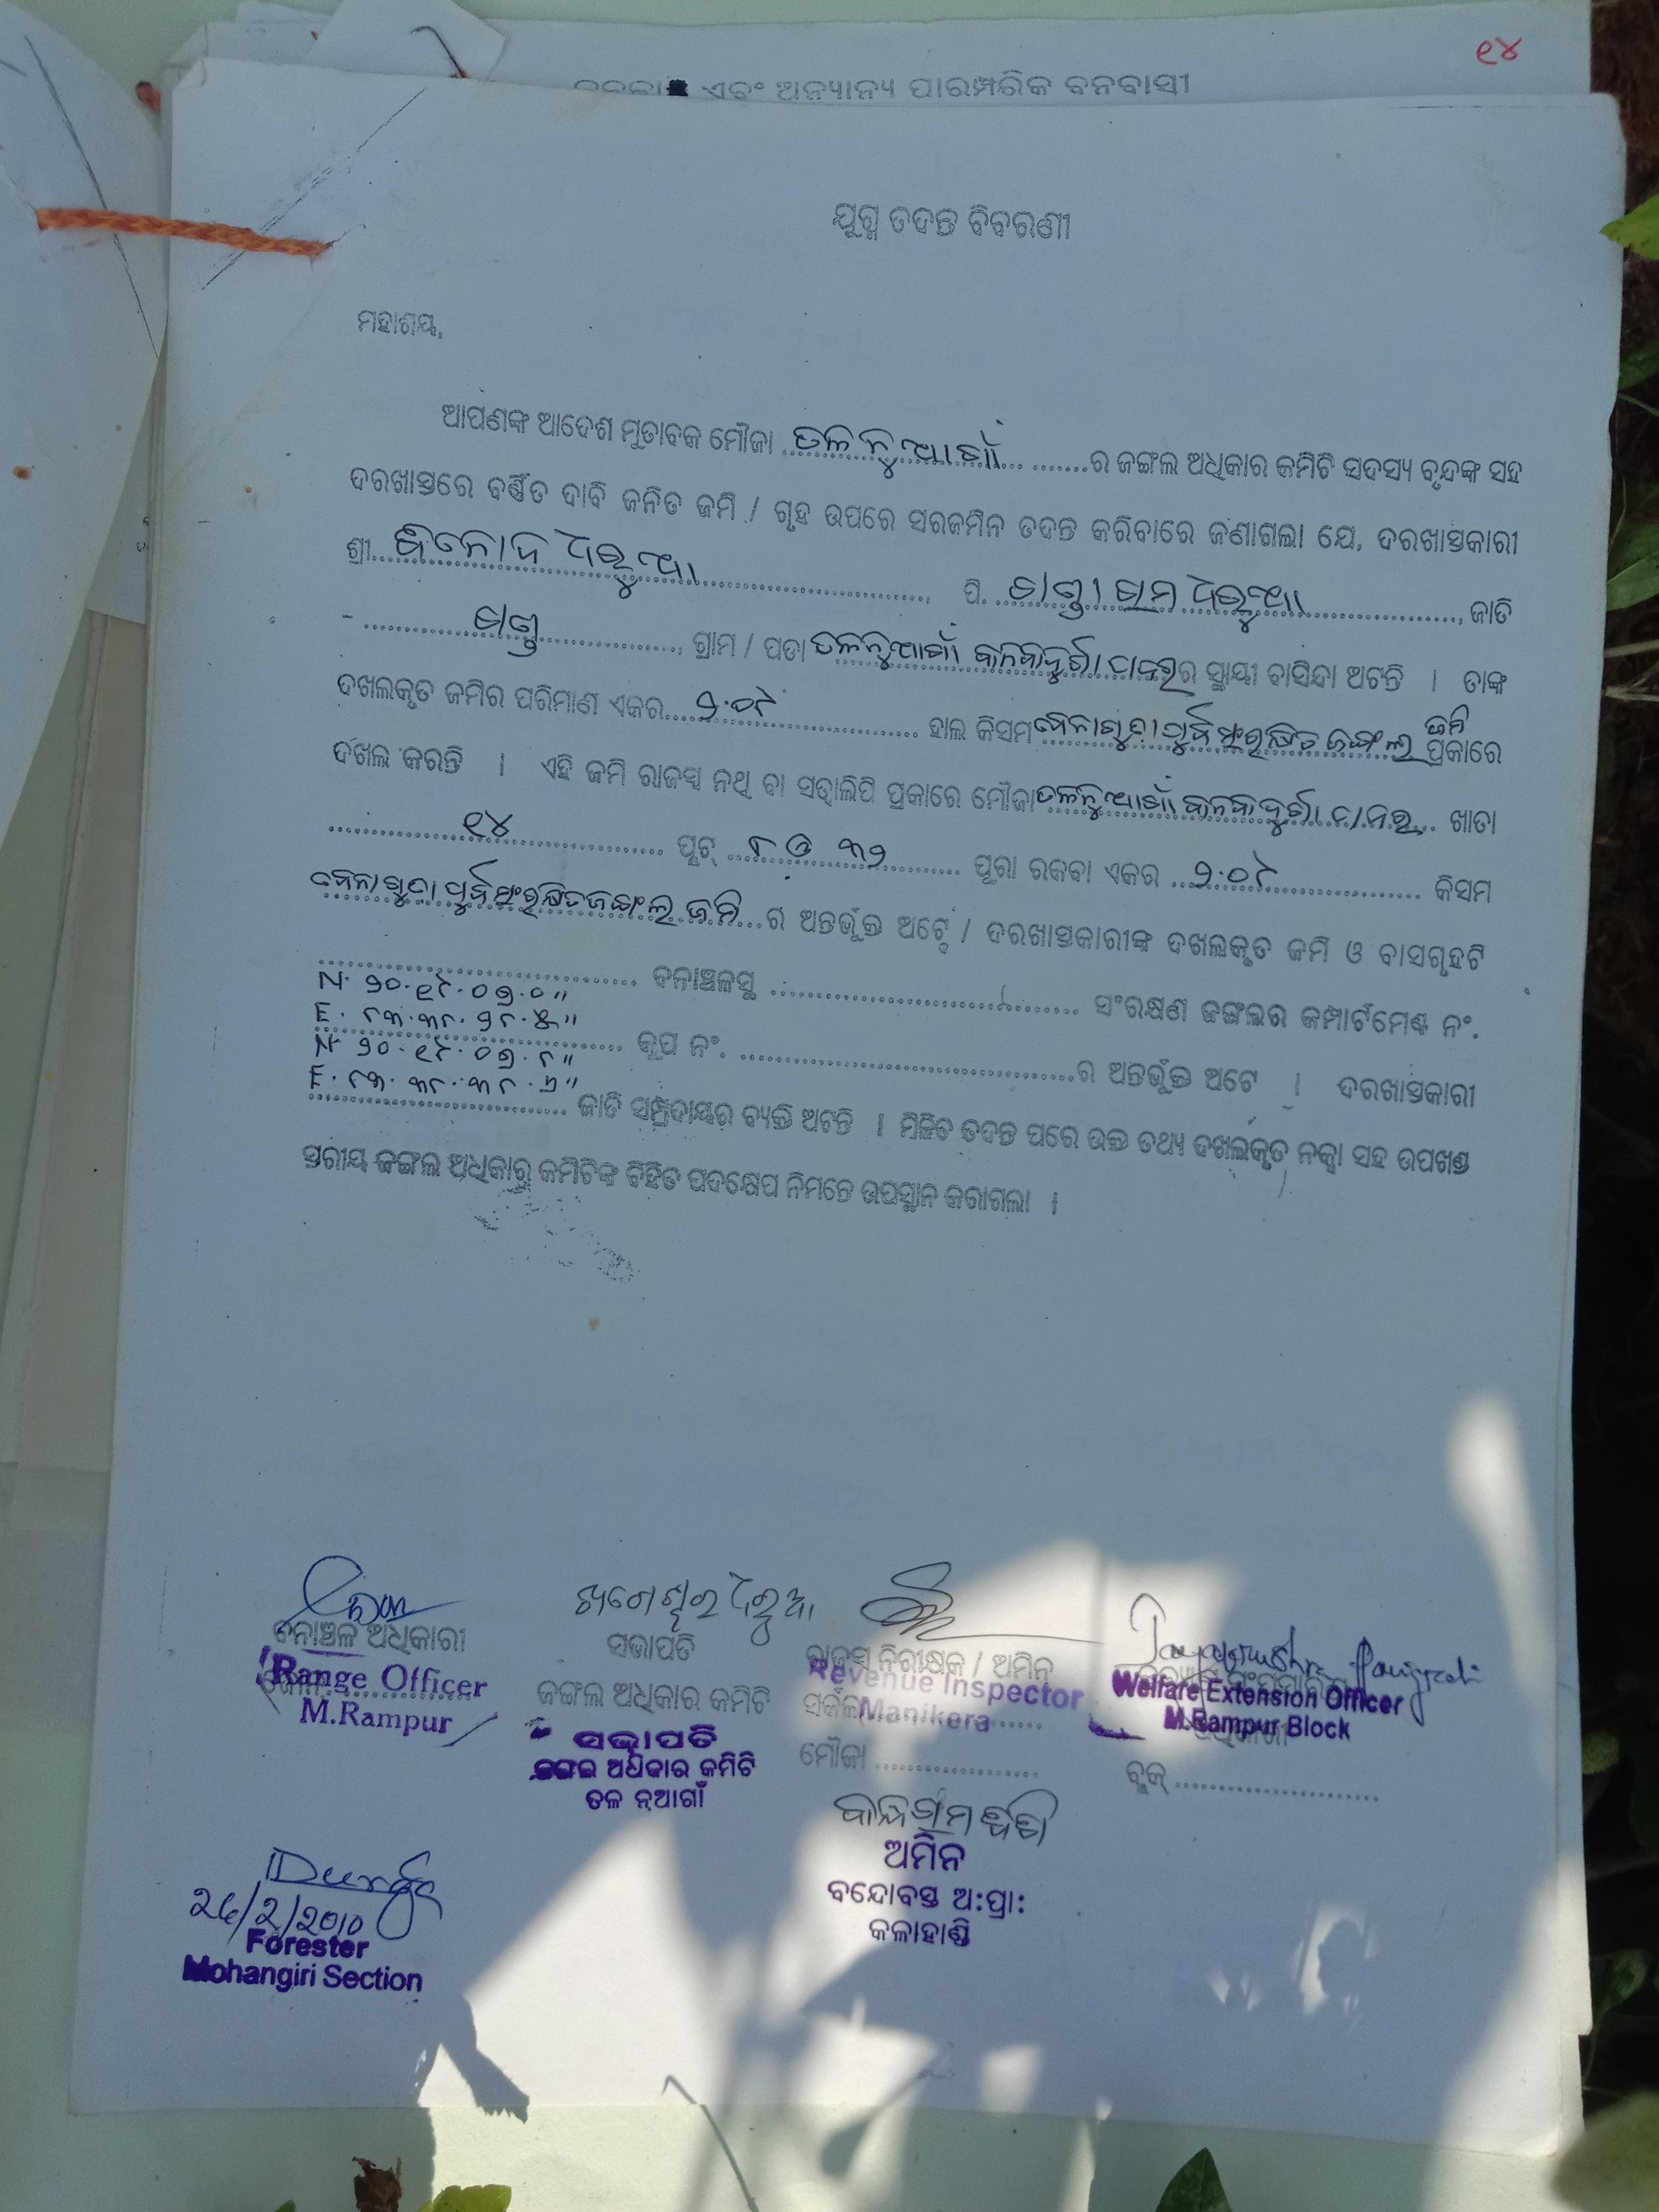 ୧୪
ଏବଂ ଅନ୍ୟାନ୍ୟ ପାରମ୍ପରିକ ବନବାସୀ
ଯୁଗ୍ମ ତଦନ୍ତ ବିବରଣୀ
ମହାଶୟ,
ଆପଣଙ୍କ ଆଦେଶ ମୁତାବକ ମୌଜା ତଳନୁଆଗାଁ ର ଜଙ୍ଗଲ ଅଧିକାର କମିଟି ସଦସ୍ୟ ବୃନ୍ଦଙ୍କ ସହ
ଦରଖାସ୍ତରେ ବର୍ଣ୍ଣିତ ଦାବି ଜନିତ ଜମି / ଗୃହ ଉପରେ ସରଜମିନ ତଦନ୍ତ କରିବାରେ ଜଣାଗଲା ଯେ, ଦରଖାସ୍ତକାରୀ
ଶ୍ରୀ ବିନୋଦ ଧରୁଆ ପି. ଖଣ୍ଡାରାମ ଧରୁଆ, ଜାତି
- ଖଣ୍ଡ, ଗ୍ରାମ / ପଡା ତଳନୁଆଗାଁ ର ସ୍ଥାୟୀ ବାସିନ୍ଦା ଅଟନ୍ତି । ତାଙ୍କ
ଦଖଲକୃତ ଜମିର ପରିମାଣ ଏକର ୨.୦୮ ହାଲ କିସମ ଜଙ୍ଗଲ ଜମି ପ୍ରକାରେ
ଦଖଲ କରନ୍ତି । ଏହି ଜମି ରାଜସ୍ୱ ନଥି ବା ସତ୍ୱାଲିପି ପ୍ରକାରେ ମୌଜା ତଳନୁଆଗାଁ ଖାତା
୧୪ ପ୍ଲଟ୍ ୮ ଓ ୩୨ ପୁରା ରକବା ଏକର ୨.୦୮ କିସମ
ଜଙ୍ଗଲ ଜମି ର ଅନ୍ତର୍ଭୁକ୍ତ ଅଟେ / ଦରଖାସ୍ତକାରୀଙ୍କ ଦଖଲକୃତ ଜମି ଓ ବାସଗୃହଟି
ବନାଞ୍ଚଳସ୍ଥ ସଂରକ୍ଷଣ ଜଙ୍ଗଲର କମ୍ପାର୍ଟମେଣ୍ଟ ନଂ.
କୂପ ନଂ. ର ଅନ୍ତର୍ଭୁକ୍ତ ଅଟେ । ଦରଖାସ୍ତକାରୀ
ଜାତି ସମ୍ପ୍ରଦାୟର ବ୍ୟକ୍ତି ଅଟନ୍ତି । ମିଳିତ ତଦନ୍ତ ପରେ ଉକ୍ତ ତଥ୍ୟ ଦଖଲକୃତ ନକ୍ସା ସହ ଉପଖଣ୍ଡ
ସ୍ତରୀୟ ଜଙ୍ଗଲ ଅଧିକାର କମିଟିଙ୍କ ବିହିତ ପଦକ୍ଷେପ ନିମନ୍ତେ ଉପସ୍ଥାନ କରାଗଲା ।
ଖଗେଶ୍ୱର ଧରୁଆ
ବନାଞ୍ଚଳ ଅଧିକାରୀ
Range Officer
M.Rampur
ସଭାପତି
ଜଙ୍ଗଲ ଅଧିକାର କମିଟି
ସଭାପତି
ଜଙ୍ଗଲ ଅଧିକାର କମିଟି
ତଳ ନୂଆଗାଁ
ରାଜସ୍ୱ ନିରୀକ୍ଷକ / ଅମିନ
Revenue Inspector
ସର୍କଲ Manikera
ମୌଜା
ଅମିନ
ବନ୍ଦୋବସ୍ତ ଅ:ପ୍ରା:
କଳାହାଣ୍ଡି
Welfare Extension Officer
M.Rampur Block
ବ୍ଲକ୍
26/2/2010
Forester
Mohangiri Section